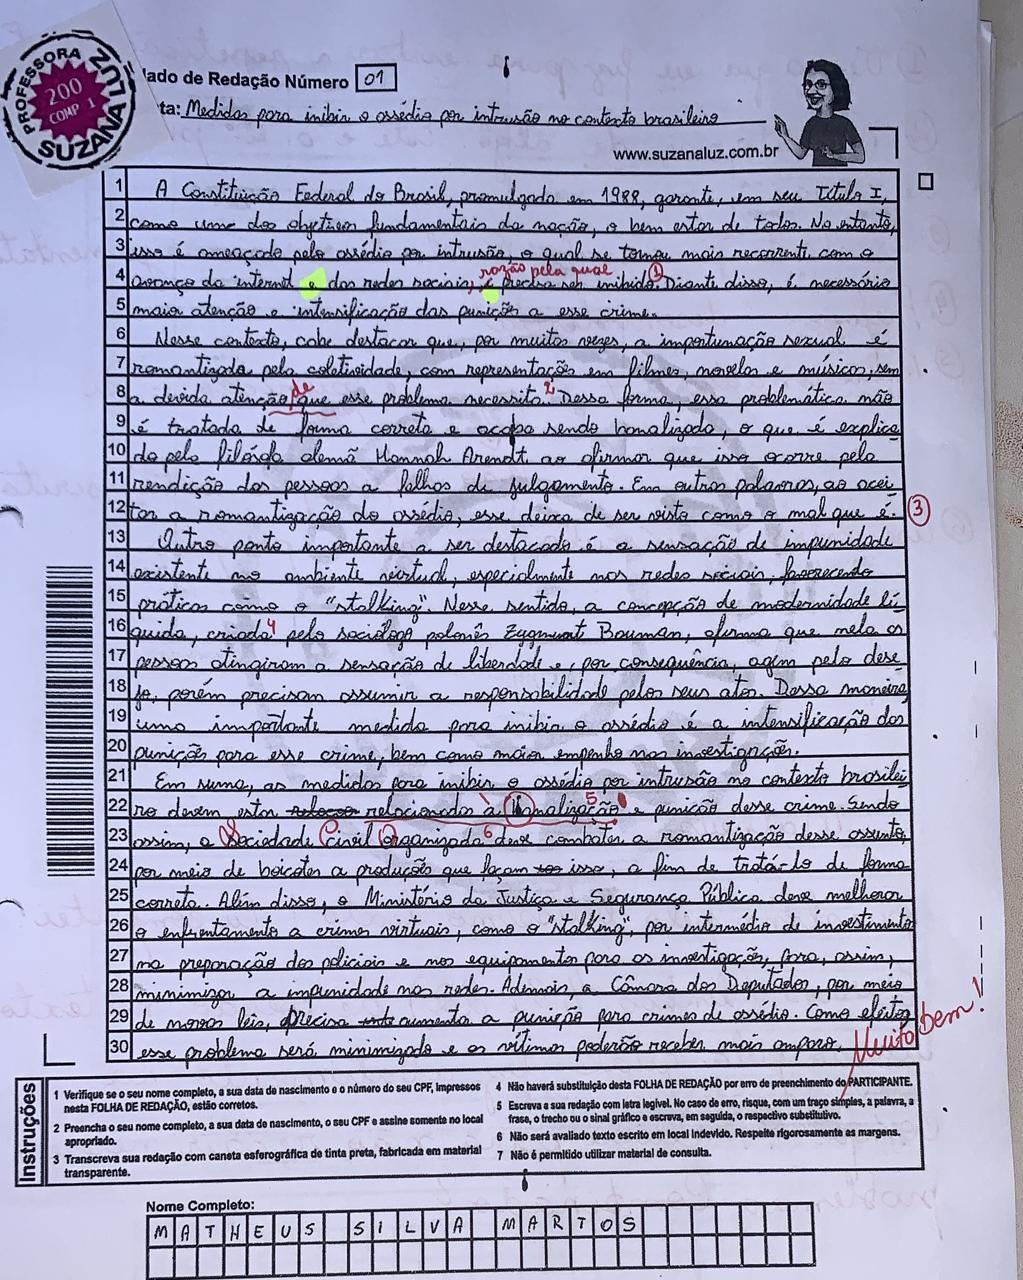 PROFESSORA
SUZANA LUZ
200
COMP 1
lado de Redação Número 01
ta: Medidas para inibir o assédio por intrusão no contexto brasileiro
www.suzanaluz.com.br
1 A Constituição Federal do Brasil, promulgada em 1988, garante, em seu Título I,
2 como um dos objetivos fundamentais da nação, o bem estar de todos. No entanto,
3 isso é ameaçado pelo assédio por intrusão, o qual se tornou mais recorrente com o
razão pela qual
4 avanço da internet e das redes sociais, e precisa ser inibido. 1 Diante disso, é necessário
5 maior atenção e intensificação das punições a esse crime.
6 Nesse contexto, cabe destacar que, por muitas vezes, a importunação sexual é
7 romantizada pela coletividade, com representações em filmes, novelas e músicas, sem
de
8 a devida atenção que esse problema necessita. 2 Dessa forma, essa problemática não
9 é tratada de forma correta e acaba sendo banalizada, o que é explica
10 do pela filósofa alemã Hannah Arendt ao afirmar que isso ocorre pela
11 rendição das pessoas a falhas de julgamento. Em outras palavras, ao acei
12 tar a romantização do assédio, esse deixa de ser visto como o mal que é. 3
13 Outro ponto importante a ser destacado é a sensação de impunidade
14 existente no ambiente virtual, especialmente nas redes sociais, favorecendo
15 práticas como o "stalking". Nesse sentido, a concepção de modernidade lí-
16 quida, criada 4 pelo sociólogo polonês Zygmunt Bauman, afirma que nela as
17 pessoas atingiram a sensação de liberdade e, por consequência, agem pelo dese
18 jo, porém precisam assumir a responsabilidade pelos seus atos. Dessa maneira,
19 uma importante medida para inibir o assédio é a intensificação das
20 punições para esse crime, bem como maior empenho nas investigações.
21 Em suma, as medidas para inibir o assédio por intrusão no contexto brasilei
22 ro devem estar relacionadas à banalização 5 e punição desse crime. Sendo
23 assim, a Sociedade Civil Organizada 6 deve combater a romantização desse assunto,
24 por meio de boicotes a produções que façam isso, a fim de tratá-lo de forma
25 correta. Além disso, o Ministério da Justiça e Segurança Pública deve melhorar
26 o enfrentamento a crimes virtuais, como o "stalking", por intermédio de investimentos
27 na preparação dos policiais e nos equipamentos para as investigações, para, assim,
28 minimizar a impunidade nas redes. Ademais, a Câmara dos Deputados, por meio
29 de novas leis, precisa aumentar a punição para crimes de assédio. Como efeito,
30 esse problema será minimizado e as vítimas poderão receber mais amparo.
Muito bem!
Instruções
1 Verifique se o seu nome completo, a sua data de nascimento e o número do seu CPF, impressos
nesta FOLHA DE REDAÇÃO, estão corretos.
2 Preencha o seu nome completo, a sua data de nascimento, o seu CPF e assine somente no local
apropriado.
3 Transcreva sua redação com caneta esferográfica de tinta preta, fabricada em material
transparente.
4 Não haverá substituição desta FOLHA DE REDAÇÃO por erro de preenchimento do PARTICIPANTE.
5 Escreva a sua redação com letra legível. No caso de erro, risque, com um traço simples, a palavra, a
frase, o trecho ou o sinal gráfico e escreva, em seguida, o respectivo substitutivo.
6 Não será avaliado texto escrito em local indevido. Respeite rigorosamente as margens.
7 Não é permitido utilizar material de consulta.
Nome Completo:
MATHEUS SILVA MARTOS